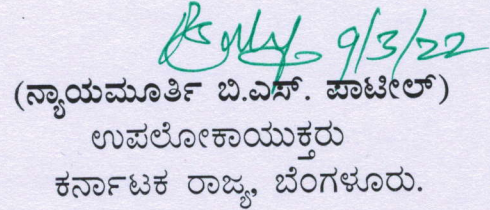 9/3/22
(ನ್ಯಾಯಮೂರ್ತಿ ಬಿ.ಎಸ್. ಪಾಟೀಲ್)
ಉಪಲೋಕಾಯುಕ್ತರು
ಕರ್ನಾಟಕ ರಾಜ್ಯ, ಬೆಂಗಳೂರು.